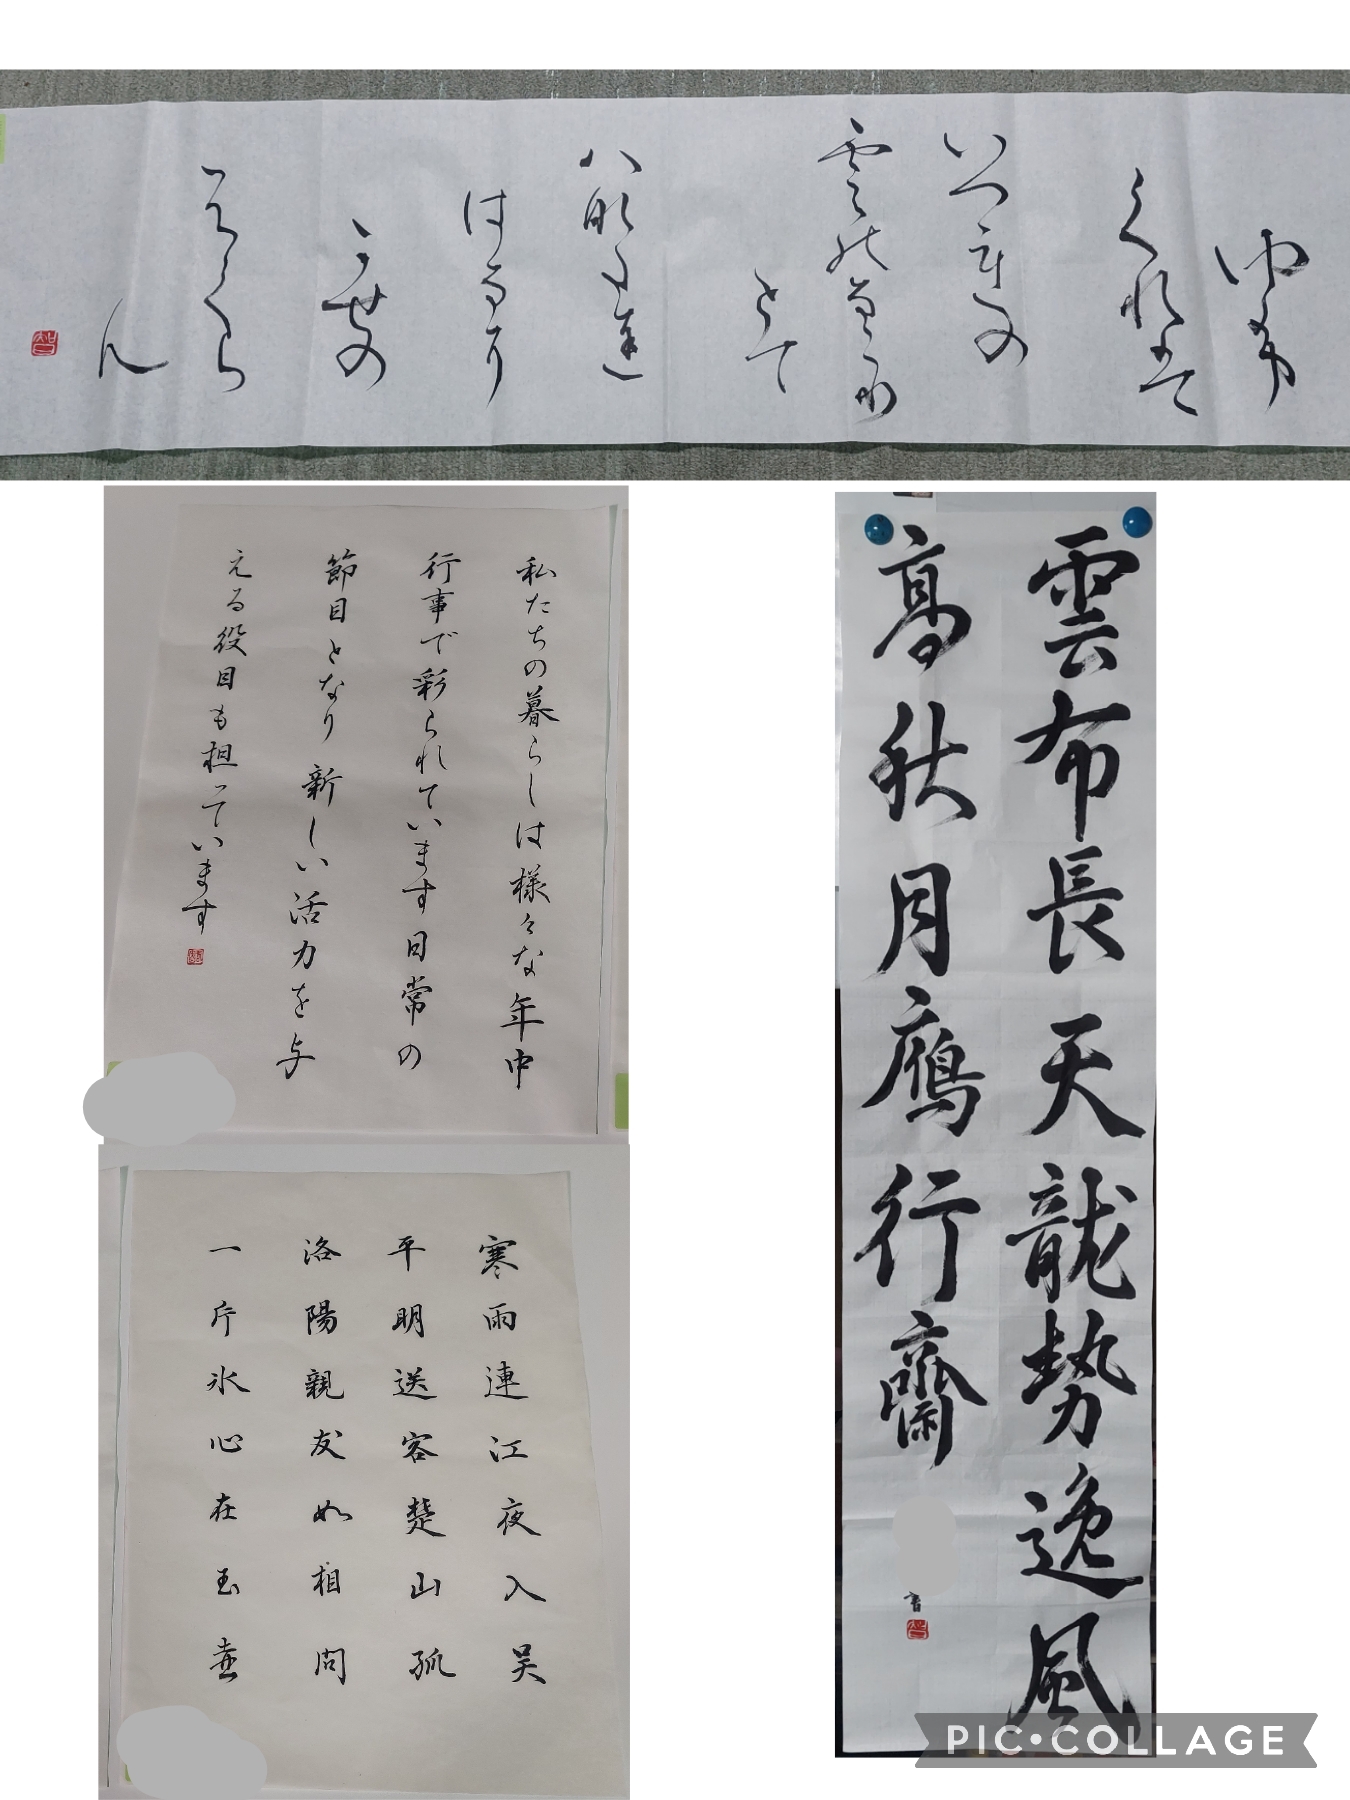 ゆふ
くれは
いつれの
雲のなこり
とて
はなたち
はなに
かせの
ふくら
ん
智
私たちの暮らしは様々な年中
行事で彩られています日常の
節目となり新しい活力を与
える役目も担っています
寒雨連江夜入吴
平明送客楚山孤
洛陽親友如相問
一片氷心在玉壺
雲布長天龍勢逸風
高秋月鴈行齋
書
智
PIC•COLLAGE